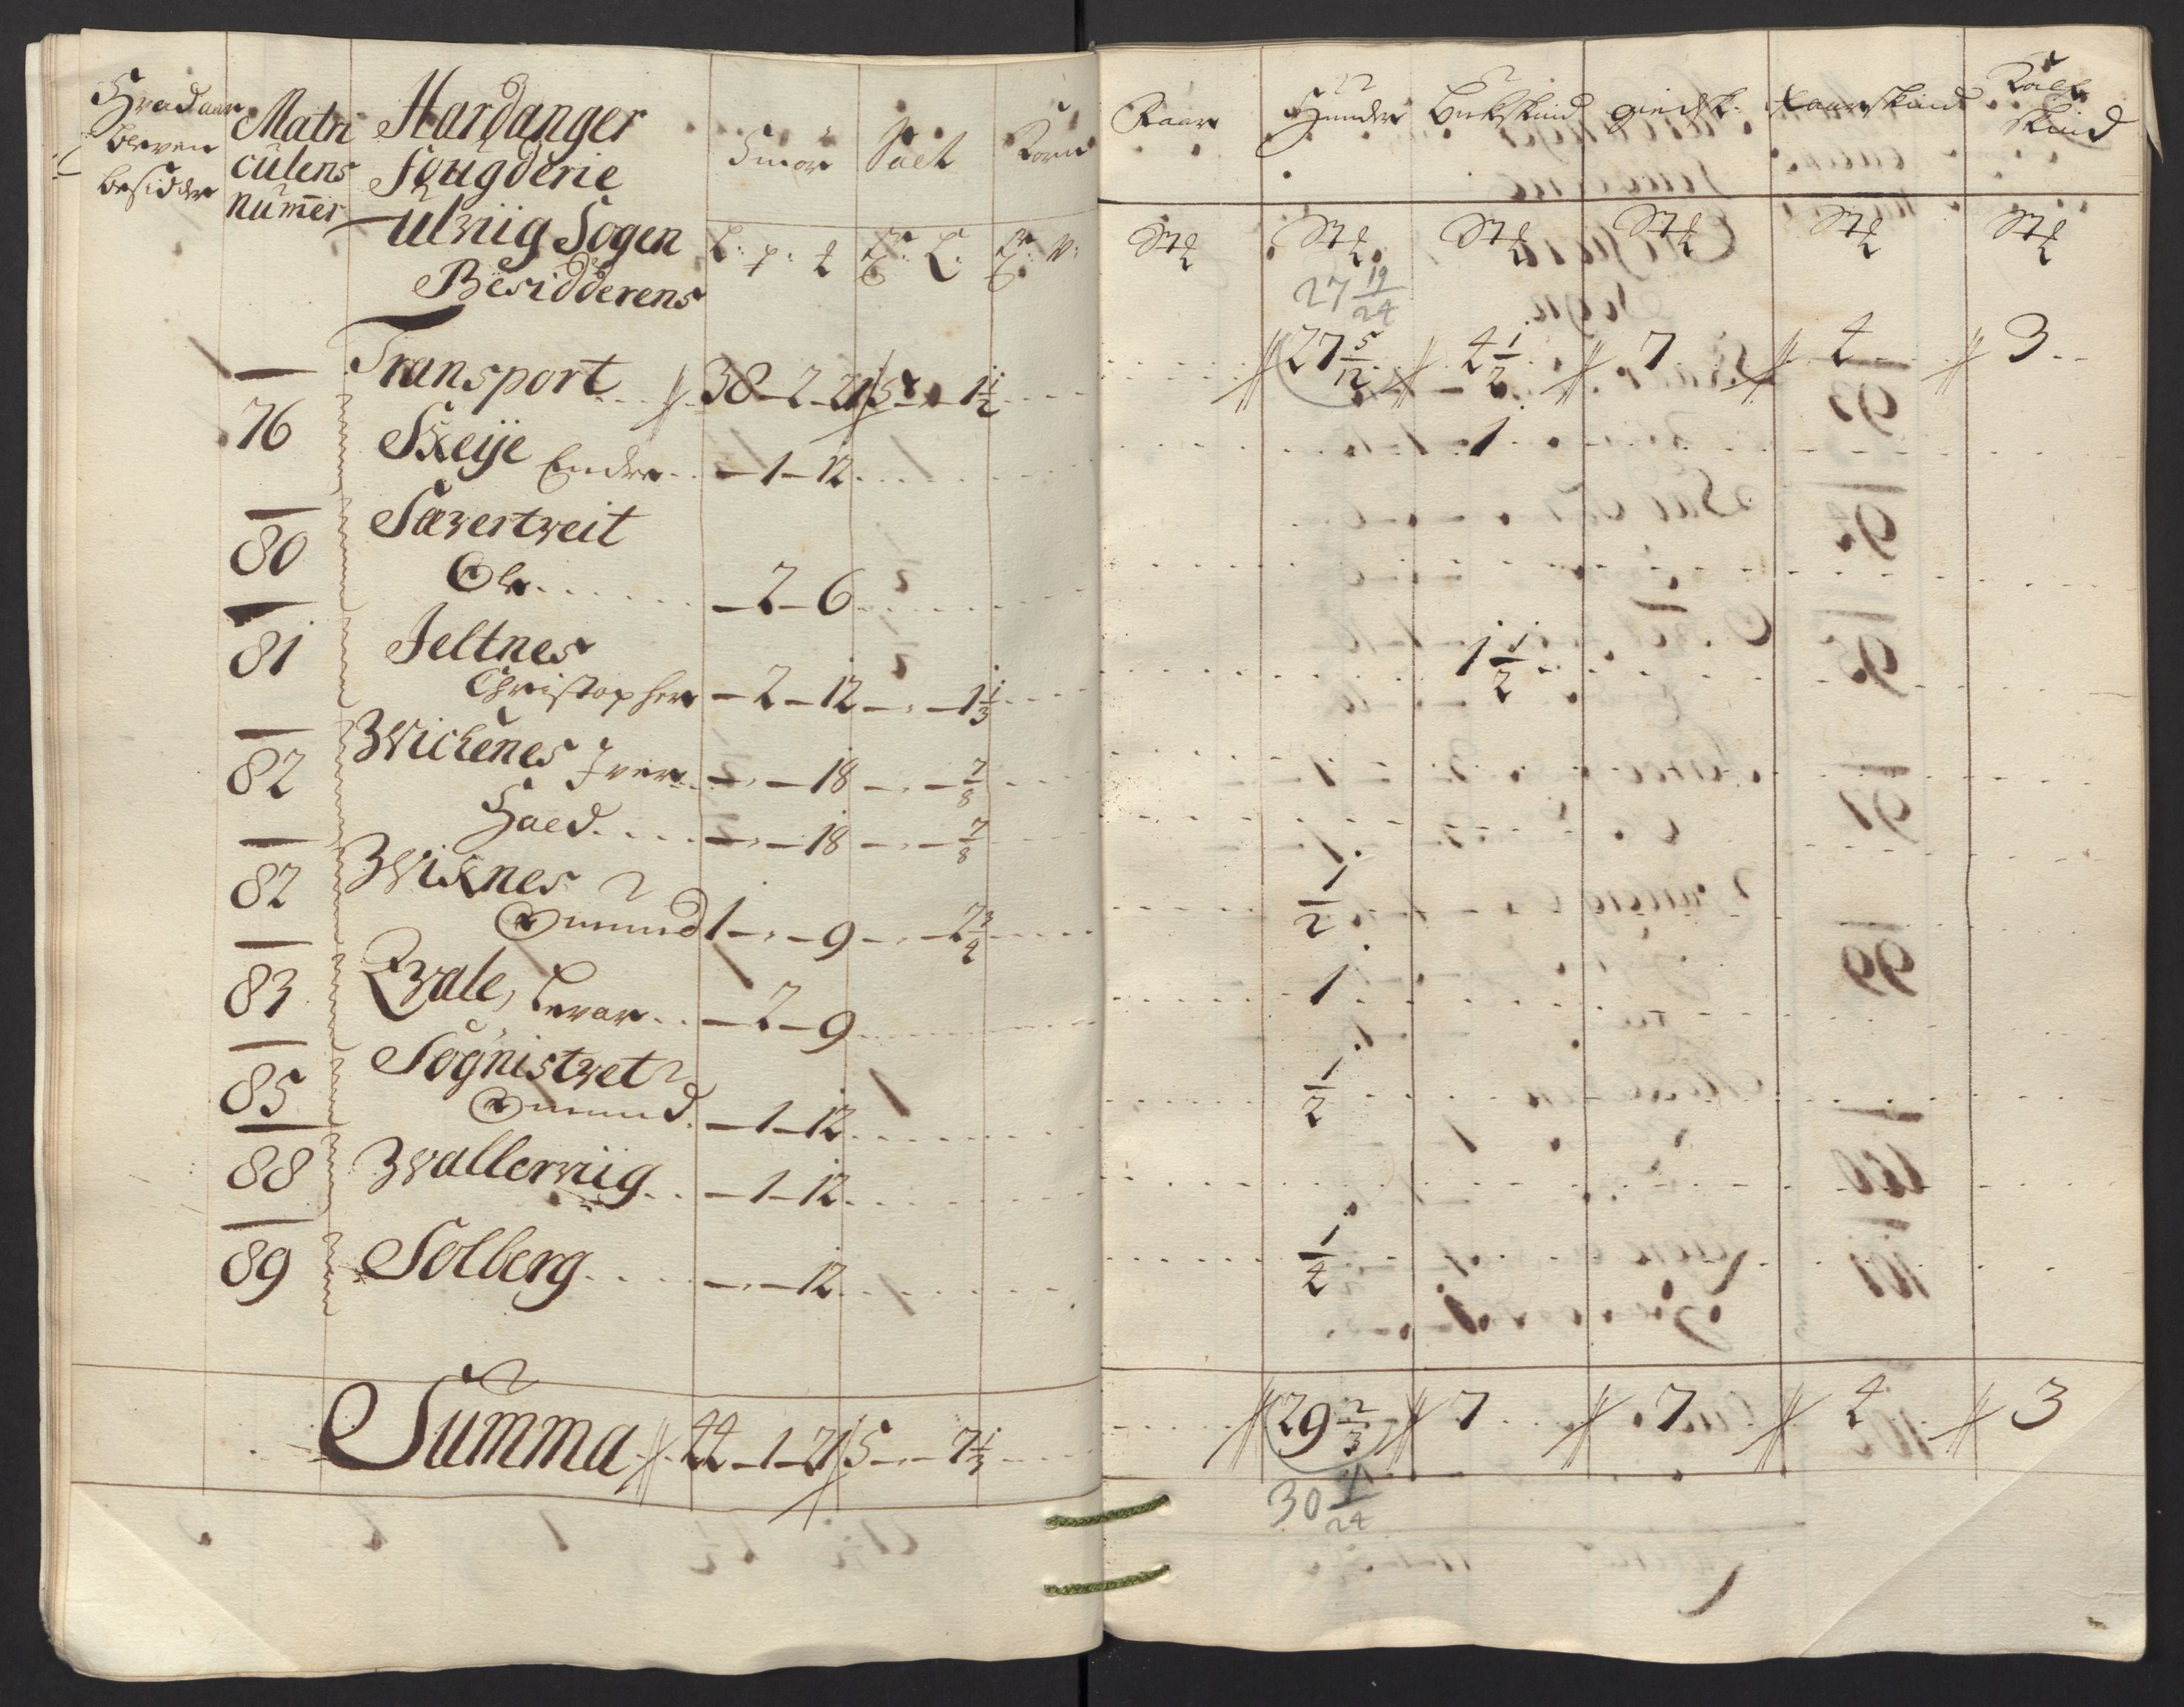 Hvad aar
bleven
besidder
Matri
culens
numer
Hardanger
Fougderie
Ulviig Sogen
Besidderens
Smör Salt Korn
Kaar Huuder Bukskind giedsk: faarskind Kalv
skind
L: p: ℔ Tr: L: Tr: V:
Stk Stk Stk Stk Stk Stk
27 19/24
Transport 38-2-21 5-„-1 1/2 27 5/12 4 1/2 7 4 3
76 Skeije Endre -1-12 1
80 Sævertveit
Ole -2-6
81 Jeltnes
Christopher -2-12 -„-1 1/3 1 1/2
82 Wichenes Iver -„-18 -„-7/8
Haed -„-18 -„-7/8
82 Wiknes
Omund 1-„-9 -„-2 3/4 1/2
83 Qvale, Levor -2-9 1
85 Sögnistvet
Omund -1-12 1/2
88 Wallervig -1-12
89 Solberg -„-12 1/4
Summa 44-1-21 5-„-7 1/3 29 2/3 7 7 4 3
30 1/24